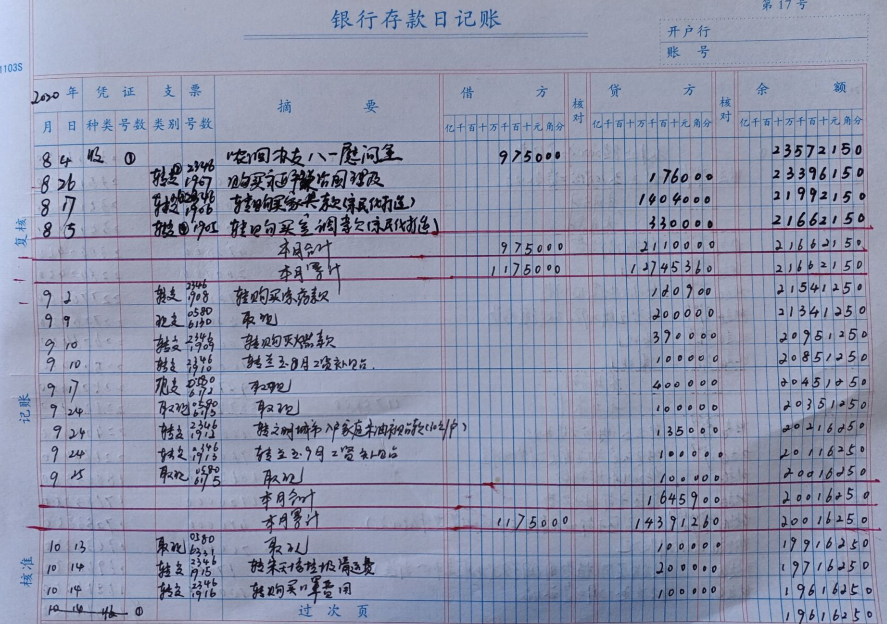 第17号
银行存款日记账
开户行
账 号
1103S
2020年 凭证 支票 摘要 借方 核对 贷方 核对 余额
月 日 种类 号数 类别 号数 亿千百十万千百十元角分 亿千百十万千百十元角分 亿千百十万千百十元角分
8 4 收 ① 八一慰问金 975000 23572150
8 26 转支 2346 1907 购买 176000 23396150
8 17 转支 1906 转购买家具款 1404000 21992150
8 5 转支 1905 转购买空调款 330000 21662150
本月合计 975000 2110000 21662150
本月累计 1175000 12745360 21662150
9 2 转支 2346 1908 转购买 120900 21541250
9 9 现支 0580 6130 取现 200000 21341250
9 10 转支 2346 1909 转购买燃款 390000 20951250
9 10 转支 2346 1910 转兰玉8月工资补贴 100000 20851250
9 17 现支 0580 取现 400000 20451250
9 24 取现 0580 取现 100000 20351250
9 24 转支 2346 转文明城市入户 135000 20216250
9 24 转支 2346 1913 转兰玉9月工资补贴 100000 20116250
9 25 取现 0580 取现 100000 20016250
本月合计 1645900 20016250
本月累计 1175000 14391260 20016250
10 13 取现 0580 6331 取现 100000 19916250
10 14 转支 2346 1915 垃圾清运费 200000 19716250
10 14 转支 2346 1916 转购买口罩费用 100000 19616250
10 14 收 ① 过次页 19616250
复核
记账
核准